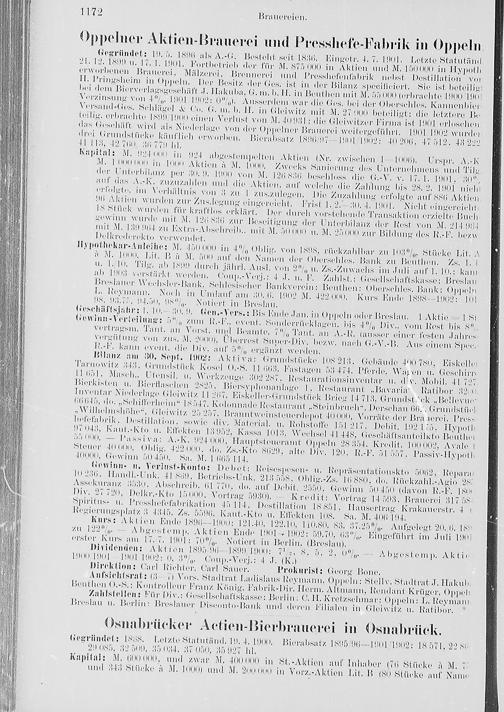 1172
Brauereien.
Oppelner Aktien-Brauerei und Presshefe-Fabrik in Oppeln
Gegründet: 19. 5. 1896 als A.-G. Besteht seit 1836. Eingetr. 4. 7. 1901. Letzte Statutänd.
21. 12. 1899 u. 17. 1. 1901. Fortbetrieb der für M. 875 000 in Aktien und M. 150 000 in Hypoth.
erworbenen Brauerei, Mälzerei, Brennerei und Presshefenfabrik nebst Destillation vor
H. Pringsheim in Oppeln. Der Besitz der Ges. ist in der Bilanz specificiert. Sie ist beteiligt
bei dem Bierverlagsgeschäft J. Hakuba, G. m. b. H. in Beuthen mit M. 55 000 (erbrachte 1900/1901
Verzinsung von 4%, 1901/1902: 0%). Ausserdem war die Ges. bei der Oberschles. Kannenbier-
Versand-Ges. Schlegel & Co. G. m. b. H. in Gleiwitz mit M. 27 000 beteiligt; die letztere Be-
teilig. erbrachte 1899/1900 einen Verlust von M. 40 931; die Gleiwitzer Firma ist 1901 erloschen
das Geschäft wird als Niederlage von der Oppelner Brauerei weitergeführt. 1901/1902 wurden
drei Grundstücke käuflich erworben. Bierabsatz 1896/97—1901/1902: 40 206, 47 512, 43 222
41 113, 42 760, 36 779 hl.
Kapital: M. 924 000 in 924 abgestempelten Aktien (Nr. zwischen 1—1006). Urspr. A.-K.
M. 1 000 000 in 1000 Aktien à M. 1000. Zwecks Sanierung des Unternehmens und Tilg.
der Unterbilanz per 30. 9. 1900 von M. 126 836 beschloss die G.-V. v. 17. 1. 1901, 30%
auf das A.-K. zuzuzahlen und die Aktien, auf welche die Zahlung bis 28. 2. 1901 nicht
erfolgte, im Verhältnis von 3 zu 1 zuszulegen. Die Zuzahlung erfolgte auf 886 Aktien
96 Aktien wurden zur Zus.legung eingereicht. Frist 1. 2.—30. 4. 1901. Nicht eingereichte
18 Stück wurden für kraftlos erklärt. Der durch vorstehende Transaktion erzielte Buch-
gewinn wurde mit M. 126 836 zur Beseitigung der Unterbilanz der Rest von M. 214 964
mit M. 139 964 zu Extra-Abschreib., mit M. 50 000 u. M. 25 000 zur Bildung des R.-F. bezw.
Delkrederekto verwendet.
Hypothekar-Anleihe: M. 450 000 in 4% Oblig. von 1898, rückzahlbar zu 103%. Stücke Lit. A
à M. 1000, Lit. B à M. 500 auf den Namen der Oberschles. Bank zu Beuthen. Zs. 1. 4.
u. 1. 10. Tilg. ab 1899 durch jährl. Ausl. von 2% u. Zs.-Zuwachs im Juli auf 1. 10.; kann
ab 1903 verstärkt werden. Coup.-Verj.: 4 J. n. F. Zahlst.: Gesellschaftskasse; Breslau:
Breslauer Wechsler-Bank, Schlesischer Bankverein; Beuthen: Oberschles. Bank; Oppeln:
L. Reymann. Noch in Umlauf am 30./6. 1902 M. 422 000. Kurs Ende 1898—1902: 101
98, 93.75, 94.50, 98%. Notiert in Breslau.
Geschäftsjahr: 1. 10.—30. 9. Gen.-Vers.: Bis Ende Jan. in Oppeln oder Breslau. 1 Aktie = 1 St.
Gewinn-Verteilung: 5% zum R.-F., event. Sonderrücklagen, bis 4% Div., vom Rest bis 8%
vertragsm. Tant. an Vorst. und Beamte, 7% Tant. an A.-R. (ausser einer festen Jahres-
vergütung von zus. M. 2000), Überrest Super-Div. bezw. nach G.-V.-B. Aus einem Spec.
R.-F. kann event. die Div. auf 5% ergänzt werden.
Bilanz am 30. Sept. 1902: Aktiva: Grundstücke 108 213, Gebäude 400 780, Eiskeller
Tarnowitz 343, Grundstück Kosel O.-S. 11 663, Fastagen 53 474, Pferde, Wagen u. Geschirre
11 651, Masch., Utensil. u. Werkzeuge 302 287, Restaurationsinventar u. div. Mobil. 41 727
Bierkisten u. Bierflaschen 2825, Biersyphonanlage 1, Restaurant „Bavaria“ Ratibor 32 0
Inventar Niederlage Gleiwitz 11 267, Eiskeller-Grundstück Brieg 14 713, Grundstück „Bellevue“
66 645, do. „Schifferheim“ 18 547, Kolonnade Restaurant „Steinbruch“, Derschau 66, Grundstück
„Wilhelmshöhe“, Gleiwitz 25 257, Branntweinsteuerdepot 40 000, Vorräte der Brauerei, Press-
hefefabrik, Destillation, sowie div. Material u. Rohstoffe 151 217, Debit. 192 155, Hypoth.
97 043, Kaut.-Kto u. Effekten 13 952, Kassa 1013, Wechsel 41 448, Geschäftsanteilkto Beuthen
55 000. — Passiva: A.-K. 924 000, Hauptsteueramt Oppeln 28 300, Kredit. 100 002, Avale
Steuer 40 000, Oblig. 422 000, do. Zs.-Kto 8620, alte Div. 120, R.-F. 51 557, Passiv-Hypoth.
40 000, Gewinn 50 454. Sa. M. 1 665 114.
Gewinn- u. Verlust-Konto: Debet: Reisespesen- u. Repräsentationskto 5062, Reparat.
10 236, Handl.-Unk. 41 869, Betriebs-Unk. 213 558, Oblig.-Zs. 16 880, do. Rückzahl.-Agio 28
Assekuranz 3530, Abschreib. 61 770, do. auf Debit. 2550, Gewinn 50 450 (davon R.-F. 180
Div. 27 720, Delkr.-Kto 15 000, Vortrag 5930). — Kredit: Vortrag 14 503, Brauerei 317 58
Spiritus- u. Presshefefabrikation 45 114, Destillation 18 851, Hausertrag Krakauerstr. 4
Regierungsplatz 3 4345, Zs. 5596, Kaut.-Kto u. Effekten 108. Sa. M. 406 194.
Kurs: Aktien Ende 1896—1900: 121.40, 122.10, 110.80, 83, 37.25%. Aufgelegt 20. 6. 189
zu 122%. — Abgestemp. Aktien Ende 1901—1902: 59.70, 43%. Eingeführt im Juli 1901
erster Kurs am 17. 7. 1901: 70%. Notiert in Berlin, (Breslau).
Dividenden: Aktien 1895/96—1899/1900: 7½, 8, 5, 2, 0%. — Abgestemp. Aktien
1900/1901—1901/1902: 0, 3%. Coup.-Verj.: 4 J. (K.)
Direktion: Carl Richter, Carl Sauer. Prokurist: Georg Bone.
Aufsichtsrat: (3—7) Vors. Stadtrat Ladislaus Reymann, Oppeln; Stellv. Stadtrat J. Hakuba
Beuthen O.-S.; Kontrolleur Franz König, Fabrik-Dir. Herm. Altmann, Rendant Krüger, Oppeln
Zahlstellen: Für Div.: Gesellschaftskasse; Berlin: C. H. Kretzschmar; Oppeln: L. Reymann
Breslau u. Berlin: Breslauer Disconto-Bank und deren Filialen in Gleiwitz u. Ratibor. *
Osnabrücker Actien-Bierbrauerei in Osnabrück.
Gegründet: 1888. Letzte Statutänd. 19. 4. 1900. Bierabsatz 1895/96—1901/1902: 18 571, 22 86
29 085, 32 509, 35 034, 37 050, 35 927 hl.
Kapital: M. 600 000, und zwar M. 400 000 in St.-Aktien auf Inhaber (76 Stücke à M. 7
und 343 Stücke à M. 1000) und M. 200 000 in Vorz.-Aktien Lit. B (80 Stücke auf Name